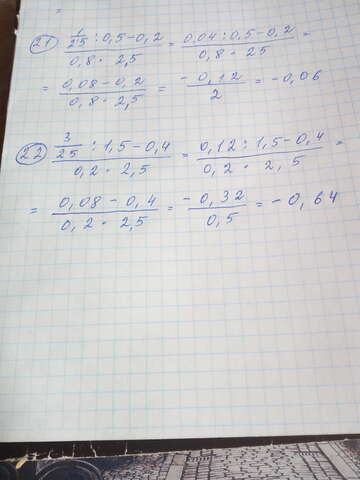 =
21) (1/25 : 0,5 - 0,2)/(0,8 · 2,5) = (0,04 : 0,5 - 0,2)/(0,8 · 25) =
= (0,08 - 0,2)/(0,8 · 2,5) = (- 0,12)/2 = - 0,06
22) (3/25 : 1,5 - 0,4)/(0,2 · 2,5) = (0,12 : 1,5 - 0,4)/(0,2 · 2,5) =
= (0,08 - 0,4)/(0,2 · 2,5) = (- 0,32)/(0,5) = - 0,64